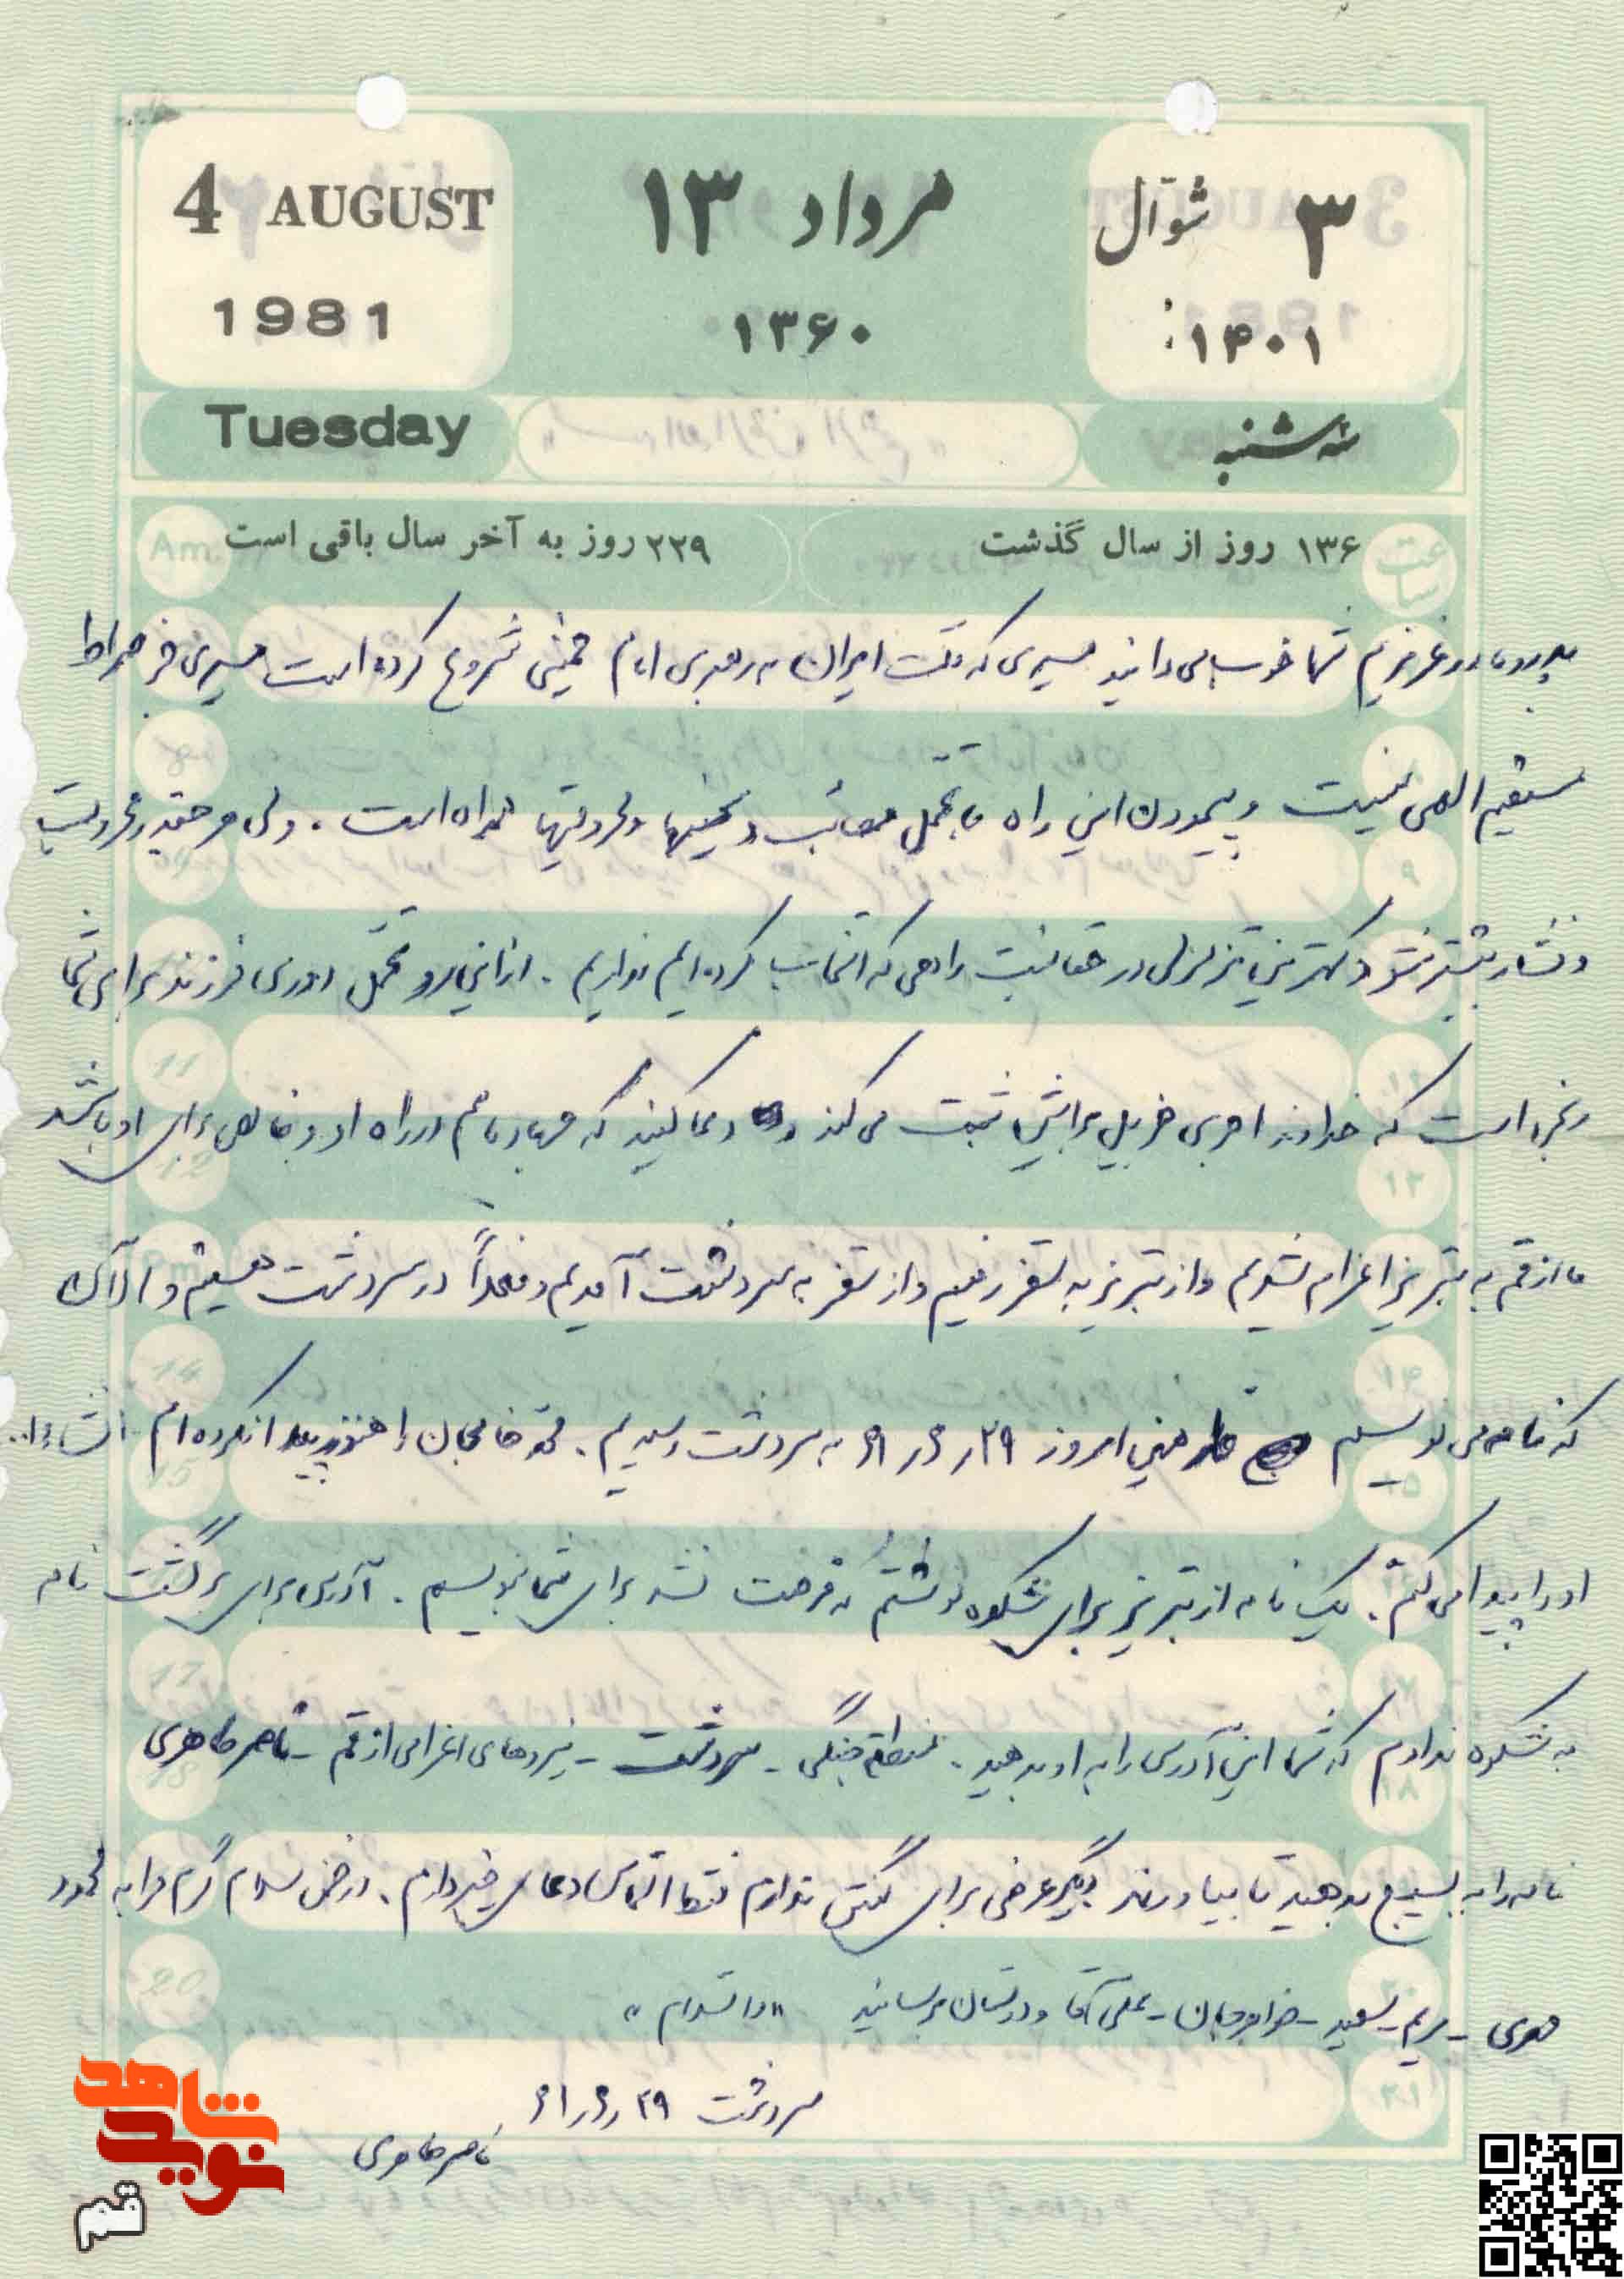 4 AUGUST
1981
۱۳ مرداد
۱۳۶۰
۳ شوّال
۱۴۰۱
Tuesday
سه‌شنبه
۱۳۶ روز از سال گذشت
۲۲۹ روز به آخر سال باقی است
ساعت
Am.
پدر و مادر عزیزم شما خوب می دانید مسیری که ملت ایران به رهبری امام خمینی شروع کرده است مسیری جز صراط
مستقیم الهی نیست و پیمودن این راه با تحمل مصائب و سختیها و محرومیتها همراه است . ولی هر چقدر محرومیت
و فشار بیشتر شود کمترین تزلزلی در حقانیت راهی که انتخاب کرده ایم نداریم . از این رو تحمل دوری فرزند برای شما
زجر است که خداوند اجری جزیل برایش ثبت می کند و دعا کنید که جهاد ما هم در راه او و خالص برای او باشد
ما از قم به تبریز اعزام شدیم و از تبریز به سقز رفتیم و از سقز به سردشت آمدیم و فعلاً در سردشت هستیم و الآن
که نامه می نویسم همین امروز ۲۹ ر ۶ ر ۶۱ به سردشت رسیدیم . محمد خامجان را هنوز پیدا نکرده ام انشاءا..
او را پیدا می کنم . یک نامه از تبریز برای شکوه نوشتم که فرصت نشد برای شما بنویسم . آدرس برای برگشت نامه
به شکوه ندادم که شما این آدرس را به او بدهید . منطقه جنگی - سردشت - نیروهای اعزامی از قم - ناصر طاهری
نامه را به بسیج بدهید تا بیاورند دیگر عرضی برای گفتن ندارم فقط التماس دعای خیر دارم . در ضمن سلام گرم مرا به محمود
مهری - مریم - سعید - خواهرجان - علی آقا و دوستان برسانید " والسلام "
سردشت ۲۹ ر ۶ ر ۶۱
ناصر طاهری
نوید شاهد
قم